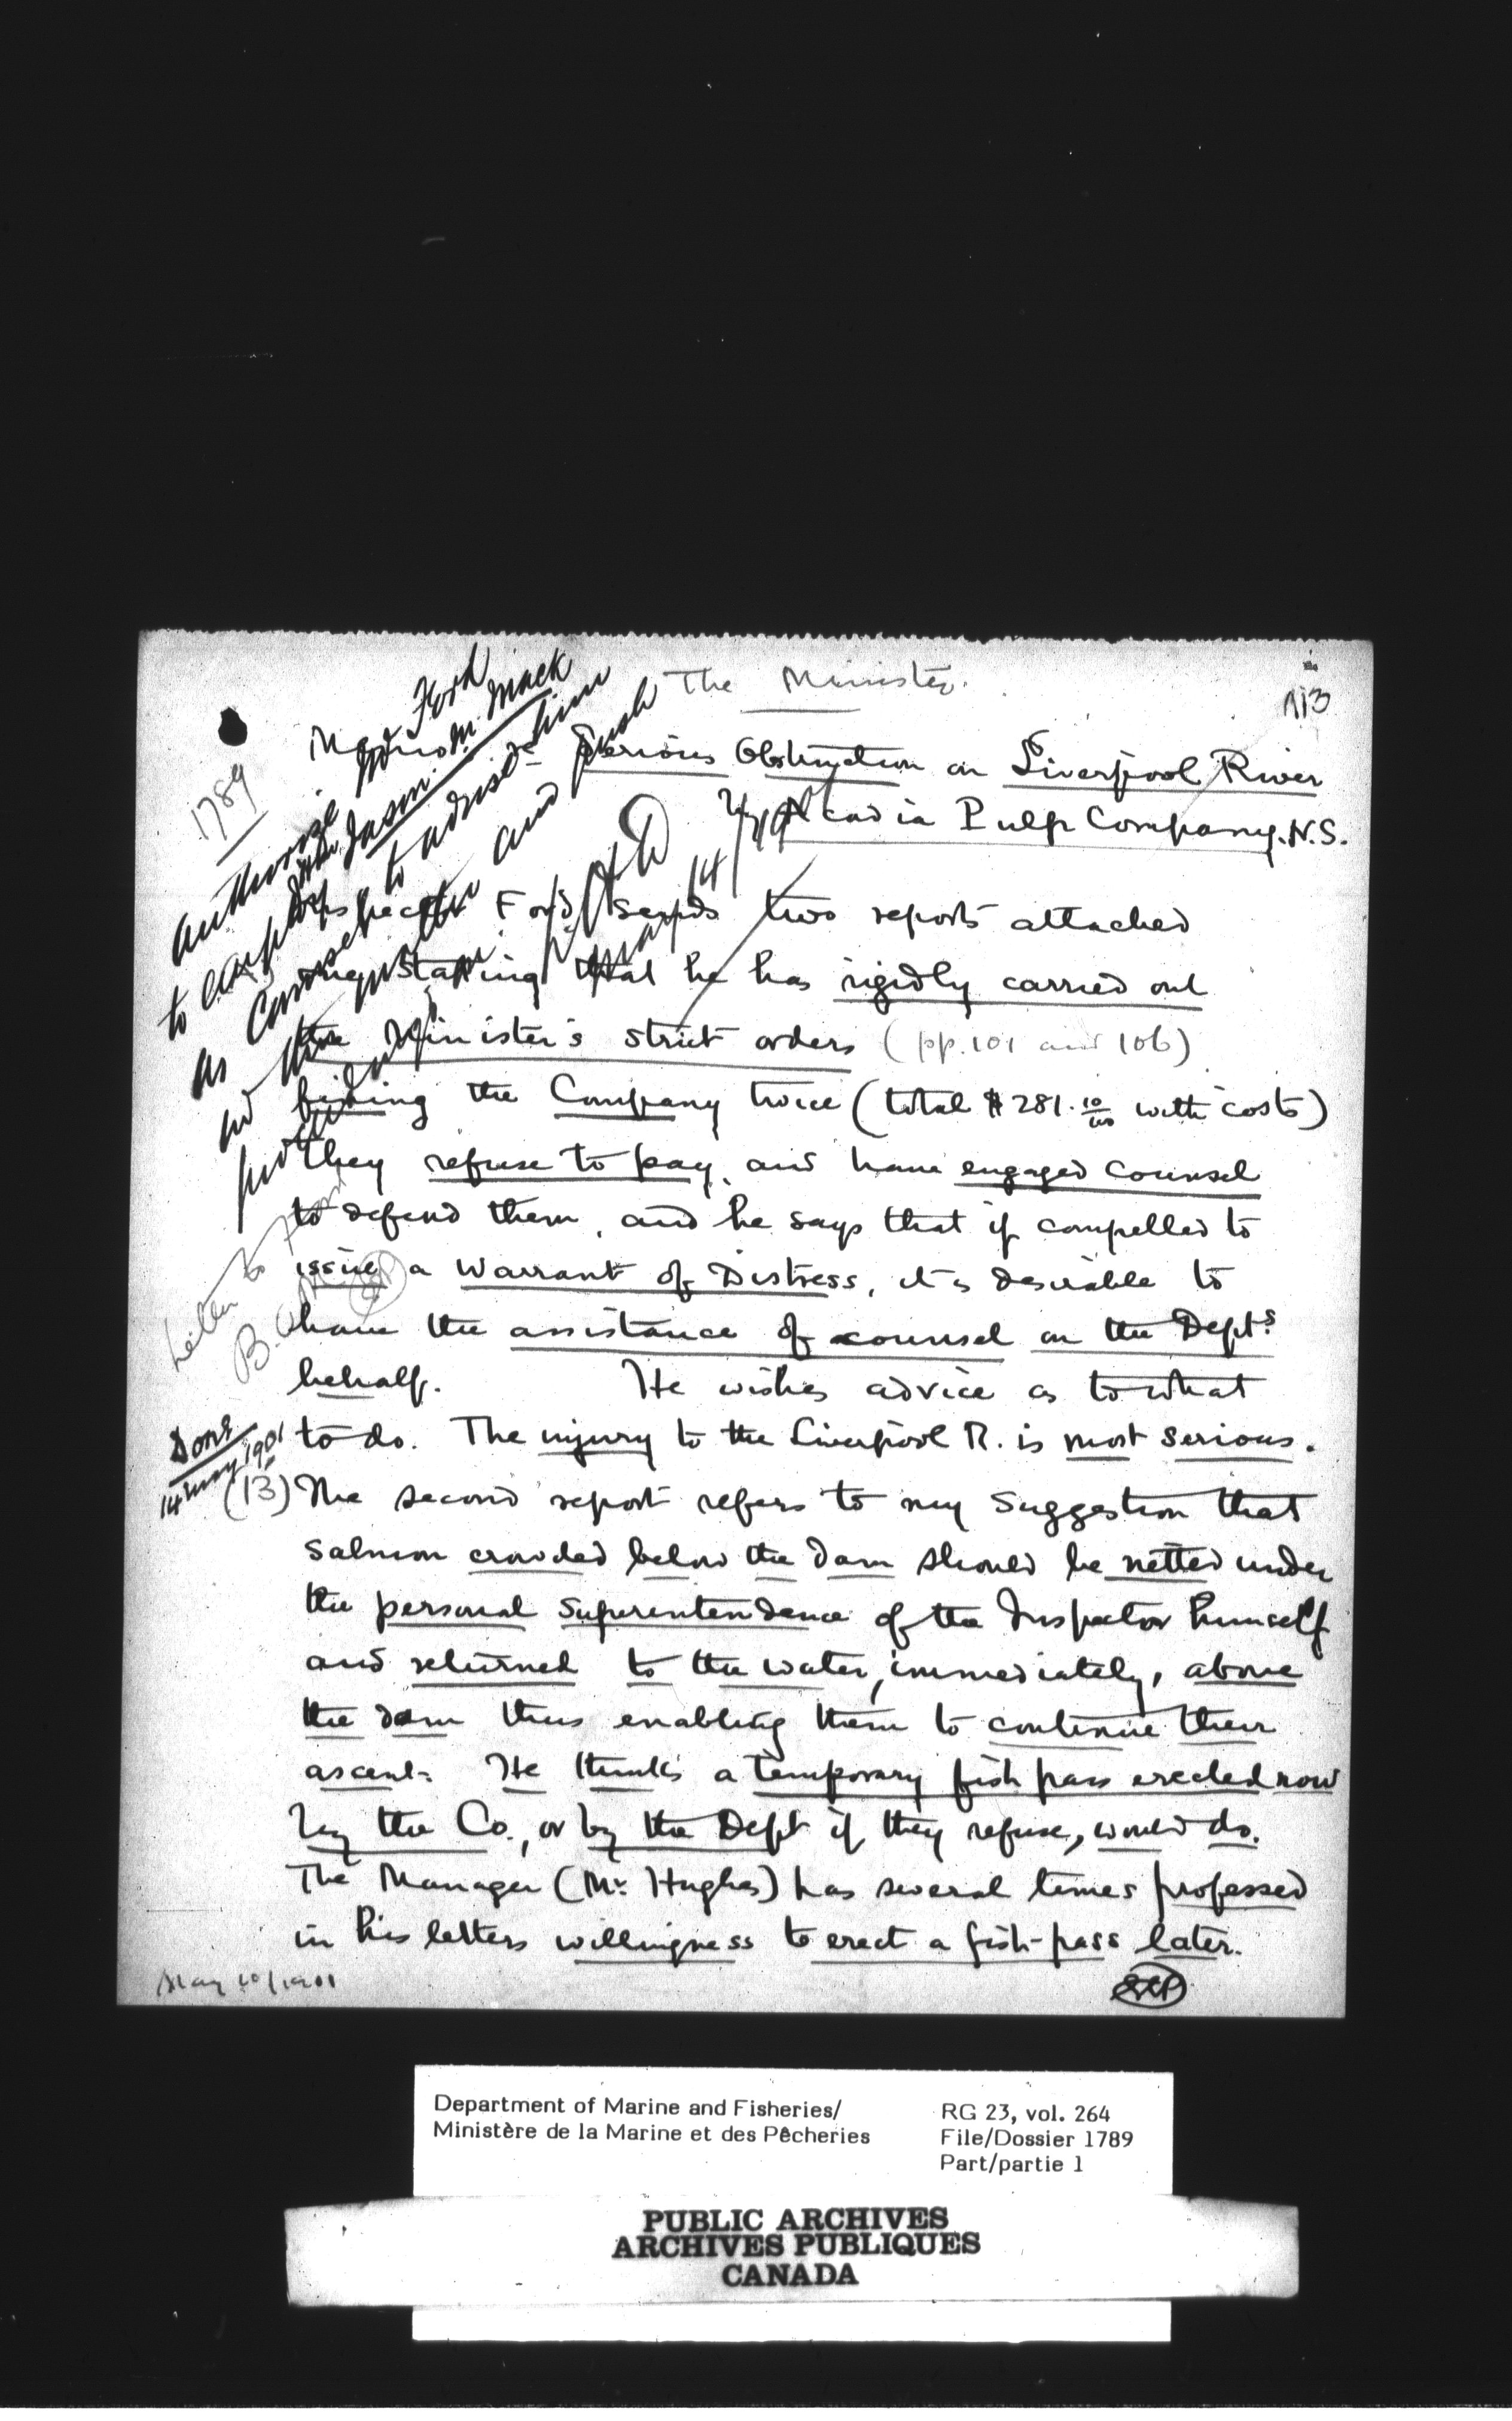 The Minister.
113
1789
Serious Obstruction on Liverpool River
Acadia Pulp Company. N.S.
Authorize Ford
to employ Jason M. Mack
as Counsel to advise him
in the matter and push
14/May
Inspector Ford sends two reports attached
one stating that he has rigidly carried out
the Minister's strict orders (pp. 101 and 106)
fining the Company twice (total $281.10/100 with costs)
They refuse to pay, and have engaged counsel
to defend them, and he says that if compelled to
issue a Warrant of Distress, it is desirable to
have the assistance of counsel on the Dept.s
behalf. He wishes advice as to what
to do. The injury to the Liverpool R. is most serious.
Letter to
Done
14 May 1901
(13) The second report refers to my suggestion that
salmon crowded below the dam should be netted under
the personal Superintendence of the Inspector himself
and returned to the water, immediately, above
the dam thus enabling them to continue their
ascent. He thinks a temporary fish pass erected now
by the Co., or by the Dept if they refuse, would do.
The Manager (Mr. Hughes) has several times professed
in his letters willingness to erect a fish-pass later.
May 10/1901
EEP
Department of Marine and Fisheries/
Ministère de la Marine et des Pêcheries
RG 23, vol. 264
File/Dossier 1789
Part/partie 1
PUBLIC ARCHIVES
ARCHIVES PUBLIQUES
CANADA